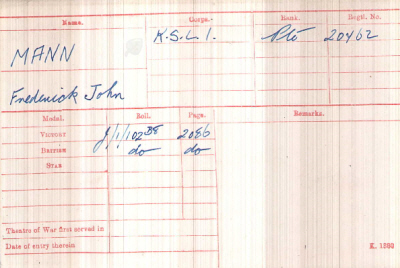 Name. Corps. Rank. Regtl. No.
MANN K.S.L.I. Pte 20462
Frederick John
Medal. Roll. Page. Remarks.
VICTORY J/1/102B8 2086
BRITISH do do
STAR
Theatre of War first served in
Date of entry therein K. 1380